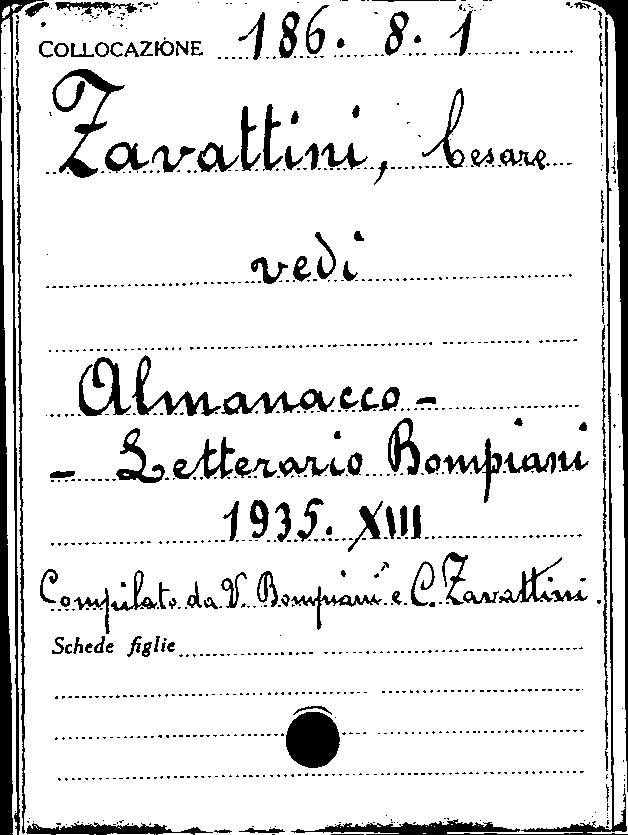 COLLOCAZIONE 186. 8. 1
Zavattini, Cesare
vedi
Almanacco -
- Letterario Bompiani
1935. XIII
Compilato da V. Bompiani e C. Zavattini.
Schede figlie